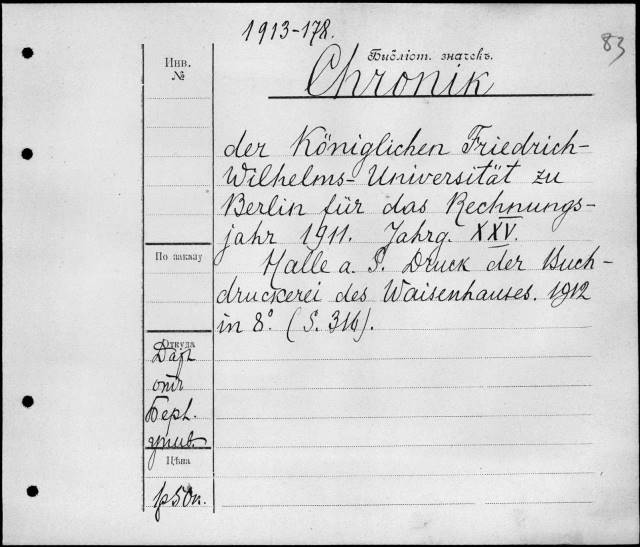 1913-178.
83
Библіот. значекъ.
Chronik
Инв.
№
der Königlichen Friedrich-
Wilhelms-Universität zu
Berlin für das Rechnungs-
jahr 1911. Jahrg. XXV.
По заказу
Halle a. S. Druck der Buch-
druckerei des Waisenhauses. 1912
in 8º. (S. 316).
Откуда
Даръ
отъ
Берл.
унив.
Цѣна
1р50к.